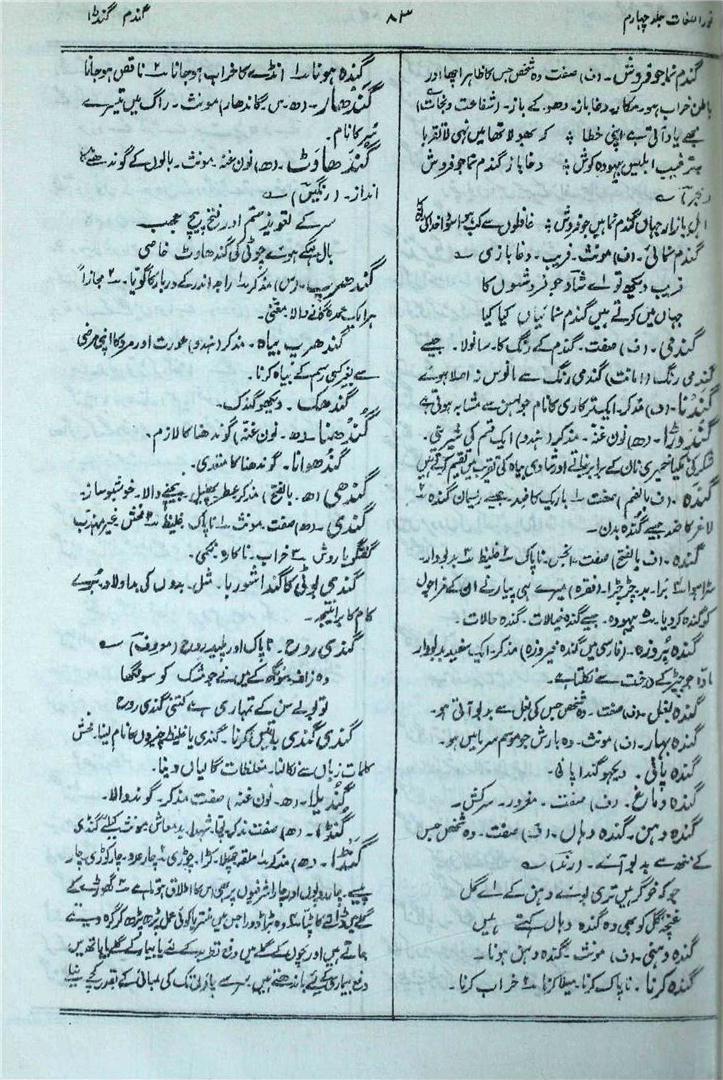 نور اللغات جلد چہارم
۸۳
گندم گنڈا
گندم نما جو فروش۔ (ف) صفت وہ شخص جس کا ظاہر اچھا اور
باطن خراب ہو۔ مکار۔ دغا باز۔ دھوکے باز۔ (شفاعت و نجات)
مجھے یاد آئی تب اپنی خطا ؞ کہ بھولا تھا میں نہی لا تقربا
فریب ابلیس بیہودہ کوش ؞ دغا باز گندم نما جو فروش
اہل بازار جہاں گندم نما ہیں جو فروش ؞ غافلوں سے کب
گندم نمائی۔ (ف) مونث۔ فریب۔ دغا بازی ؎
فریب دیکھ تو اے شاد جو فروشوں کا
جہاں میں کرتے ہیں گندم نمائیاں کیا کیا
گندمی۔ (ف) صفت۔ گندم کے رنگ کا۔ سانولا۔ جیسے
گندمی رنگ (امانت) گندمی رنگ سے مانوس نہ اصلا ہوئے
گندنا۔ (ف) مذکر۔ ایک ترکاری کا نام جو لہسن سے مشابہ ہوتی ہے
گندوڑا۔ (ھ۔ نون غنہ۔ مذکر۔ (ہندو) ایک قسم کی شیرینی۔
شکر کی ٹکیا خمیری نان کے برابر بناتے اور شادی بیاہ کی تقریب میں تقسیم کرتے ہیں
گندہ۔ (ف بالضم) صفت ۱ باریک کا ضد۔ جیسے ریسمان گندہ ۲
لاغر کا ضد جیسے گندہ بدن۔
گندہ۔ (ف بالفتح) صفت۔ ۱ نجس۔ ناپاک ۲ غلیظ ۳ بدبودار۔
سڑا ہوا ۴ برا۔ بد۔ چڑچڑا۔ (فقرہ) میرے ہی پیار نے ان کے مزاج کو
کو گندہ کر دیا۔ ۵ بیہودہ۔ جیسے گندہ خیالات۔ گندہ حالات۔
گندہ بروزہ۔ (فارسی میں گندہ فیروزہ) مذکر۔ ایک سفید بدبودار
مادہ جو چیڑ کے درخت سے نکلتا ہے۔
گندہ بغل۔ (ف) صفت۔ وہ شخص جس کی بغل سے بدبو آتی ہو۔
گندہ بہار۔ (ف) مونث۔ وہ بارش جو موسم سرما میں ہو۔
گندہ پانی۔ دیکھو گندا پانی۔
گندہ دماغ۔ (ف) صفت۔ مغرور۔ سرکش۔
گندہ دہن۔ گندہ دہاں۔ (ف) صفت۔ وہ شخص جس
کے منھ سے بدبو آئے۔ (رند) ؎
جو کہ خوگر ہیں تری بوئے دہن کے اے گل
غنچہ گل کو بھی وہ گندہ دہاں کہتے ہیں
گندہ دہنی۔ (ف) مونث۔ گندہ دہن ہونا۔
گندہ کرنا۔ ناپاک کرنا۔ میلا کرنا ۲ خراب کرنا۔
گندہ ہونا ۱۔ انڈے کا خراب ہو جانا ۲ ناقص ہو جانا
گندھار۔ (ھ۔ س۔ گاندھار) مونث۔ راگ میں تیسرے
سُر کا نام۔
گندھاوٹ۔ (ھ) نون غنہ۔ مونث۔ بالوں کے گوندھنے کا
انداز۔ (رنگین) ؎
سر کے تعویذ ستم اور زلف پر پیچ عجب
بال مہکے ہوئے چوٹی کی گندھاوٹ خاصی
گندھرب۔ (س) مذکر ۱۔ راجہ اندر کے دربار کا گویا۔ ۲ مجازاً
ہر ایک عمدہ گانے والا۔ مغنی۔
گندھرب بیاہ۔ مذکر (ہندو) عورت اور مرد کا اپنی مرضی
سے بغیر کسی رسم کے بیاہ کرنا۔
گندھک۔ دیکھو گندک۔
گندھنا۔ (ھ۔ نون غنہ) گوندھنا کا لازم۔
گندھوانا۔ گوندھنا کا متعدی۔
گندھی۔ (ھ۔ بالفتح) مذکر۔ عطر پھلیل بیچنے والا۔ خوشبو ساز۔
گندی۔ (ھ) صفت۔ مونث ۱۔ ناپاک۔ غلیظ ۲ فحش۔ غیر مہذب
گفتگو یا روش ۳ خراب۔ ناکارہ۔ نکمی۔
گندی بوٹی کا گندا شوربا۔ مثل۔ بدوں کی بد اولاد۔ بُرے
کام کا برا نتیجہ۔
گندی روح۔ ناپاک اور پلید روح (معروف) ؎
وہ زلف سونگھ کے میں نے جو مشک کو سونگھا
تو بولے سن کے تمہاری ہے کتنی گندی روح
گندی گندی باتیں کرنا۔ گندی یا غلیظ چیزوں کا نام لینا۔ فحش
کلمات زباں سے نکالنا۔ مغلظات گالیاں دینا۔
گندیلا۔ (ھ۔ نون غنہ) صفت مذکر۔ گوند والا۔
گنڈا۔ (ھ) صفت مذکر۔ لچا۔ شہدا۔ بدمعاش۔ مونث کیلئے گنڈی
گنڈا۔ (ھ) مذکر ۱۔ حلقہ۔ چھلا۔ کڑا۔ چوڑی ۲ چار عدد۔ چار کوڑی۔ چار
پیسے۔ چار روپوں اور چار اشرفیوں پر بھی اس کا اطلاق ہوتا ہے ۳ گھوڑے کے
گلے میں ڈالنے کا پٹا ۴ وہ بٹا ڈورا جس میں منتر یا کوئی عمل پڑھ پڑھ کر گرہ دیتے
جاتے ہیں اور بچوں کے گلے میں دفع نظر بد کے لئے یا بیمار کے گلے یا ہاتھ میں
دفع بیماری کے لئے باندھتے ہیں۔ سر سے پاؤں تک کی لمبائی کے بقدر کچے